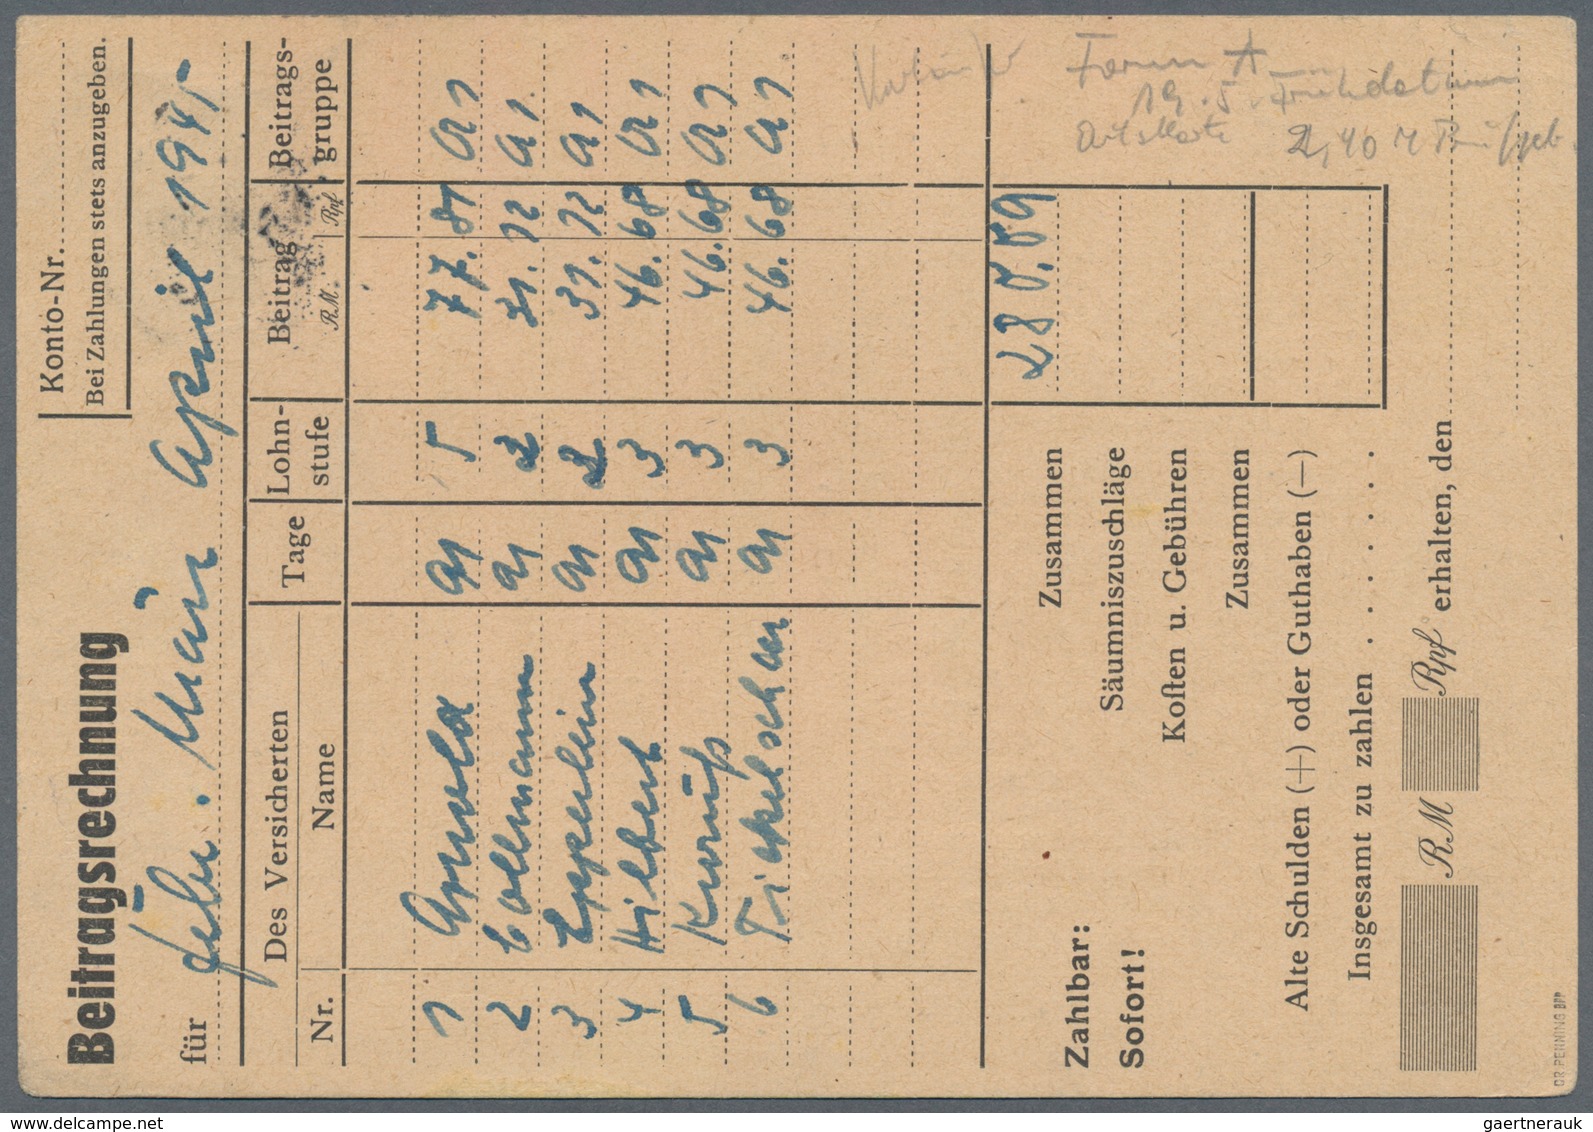 Beitragsrechnung
Konto-Nr.
Bei Zahlungen stets anzugeben.
für Febr. März April 1945
Des Versicherten
Nr. Name Tage Lohn-stufe Beitrag RM. Rpf Beitrags-gruppe
1 Arnold 91 5 77.81 A1
2 Collmann 91 2 31.12 A1
3 Epperlein 91 2 31.12 A1
4 Hilbert 91 3 46.68 A1
5 91 3 46.68 A1
6 91 3 46.68 A1
Form A
19.5. Frühdatum
Ortskarte 2,40 M
Zahlbar:
Sofort!
Zusammen 280.09
Säumniszuschläge
Koſten u. Gebühren
Zusammen
Alte Schulden (+) oder Guthaben (—)
Insgesamt zu zahlen . . . . . .
RM Rpf erhalten, den
DR. PENNING BPP
delcampe.net
gaertnerauk